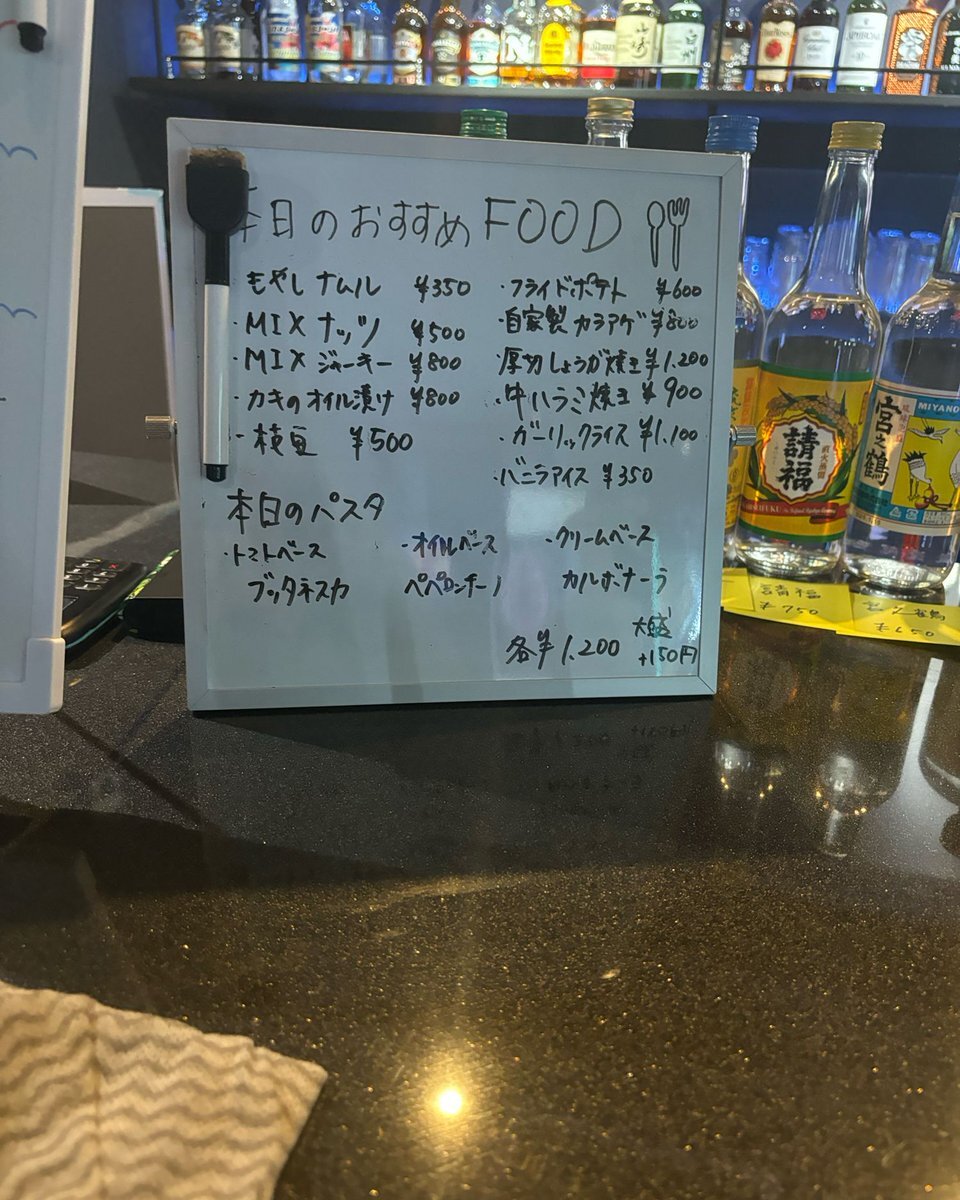 本日のおすすめ FOOD
もやし ナムル ¥350
・MIX ナッツ ¥500
・MIX ジャーキー ¥800
・カキのオイル漬け ¥800
・枝豆 ¥500
・フライドポテト ¥600
・自家製カラアゲ ¥800
・厚切しょうが焼き ¥1,200
・牛ハラミ焼き ¥900
・ガーリックライス ¥1,100
・バニラアイス ¥350
本日のパスタ
・トマトベース
プッタネスカ
・オイルベース
ペペロンチーノ
・クリームベース
カルボナーラ
各¥1,200
大盛
+150円
請福
宮之鶴
MIYANO
請福
¥750
宮之鶴
山崎
白州